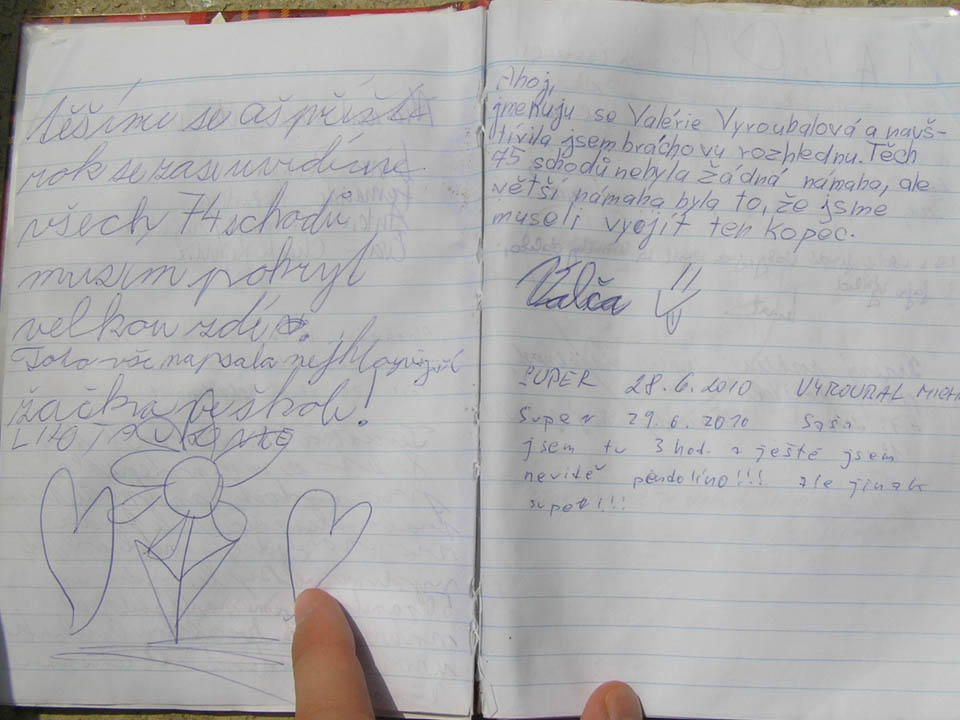 těšíme se až příšt
rok se zase uvidíme
všech 74 schodů
musím pokrýt
velkou zdí.
Toto vše napsala
žačka ve škole!
Ahoj,
jmenuju se Valérie Vyroubalová a navš-
tívila jsem bráchovu rozhlednu. Těch
75 schodů nebyla žádná námaha, ale
větší námaha byla to, že jsme
museli vyojít ten kopec.
Valča
SUPER 28.6.2010 VYROUBAL MICHA
Super 29.6.2010 Saša
jsem tu 3 hod. a ještě jsem
nevidě pendolíno!!! ale jinak
super!!!